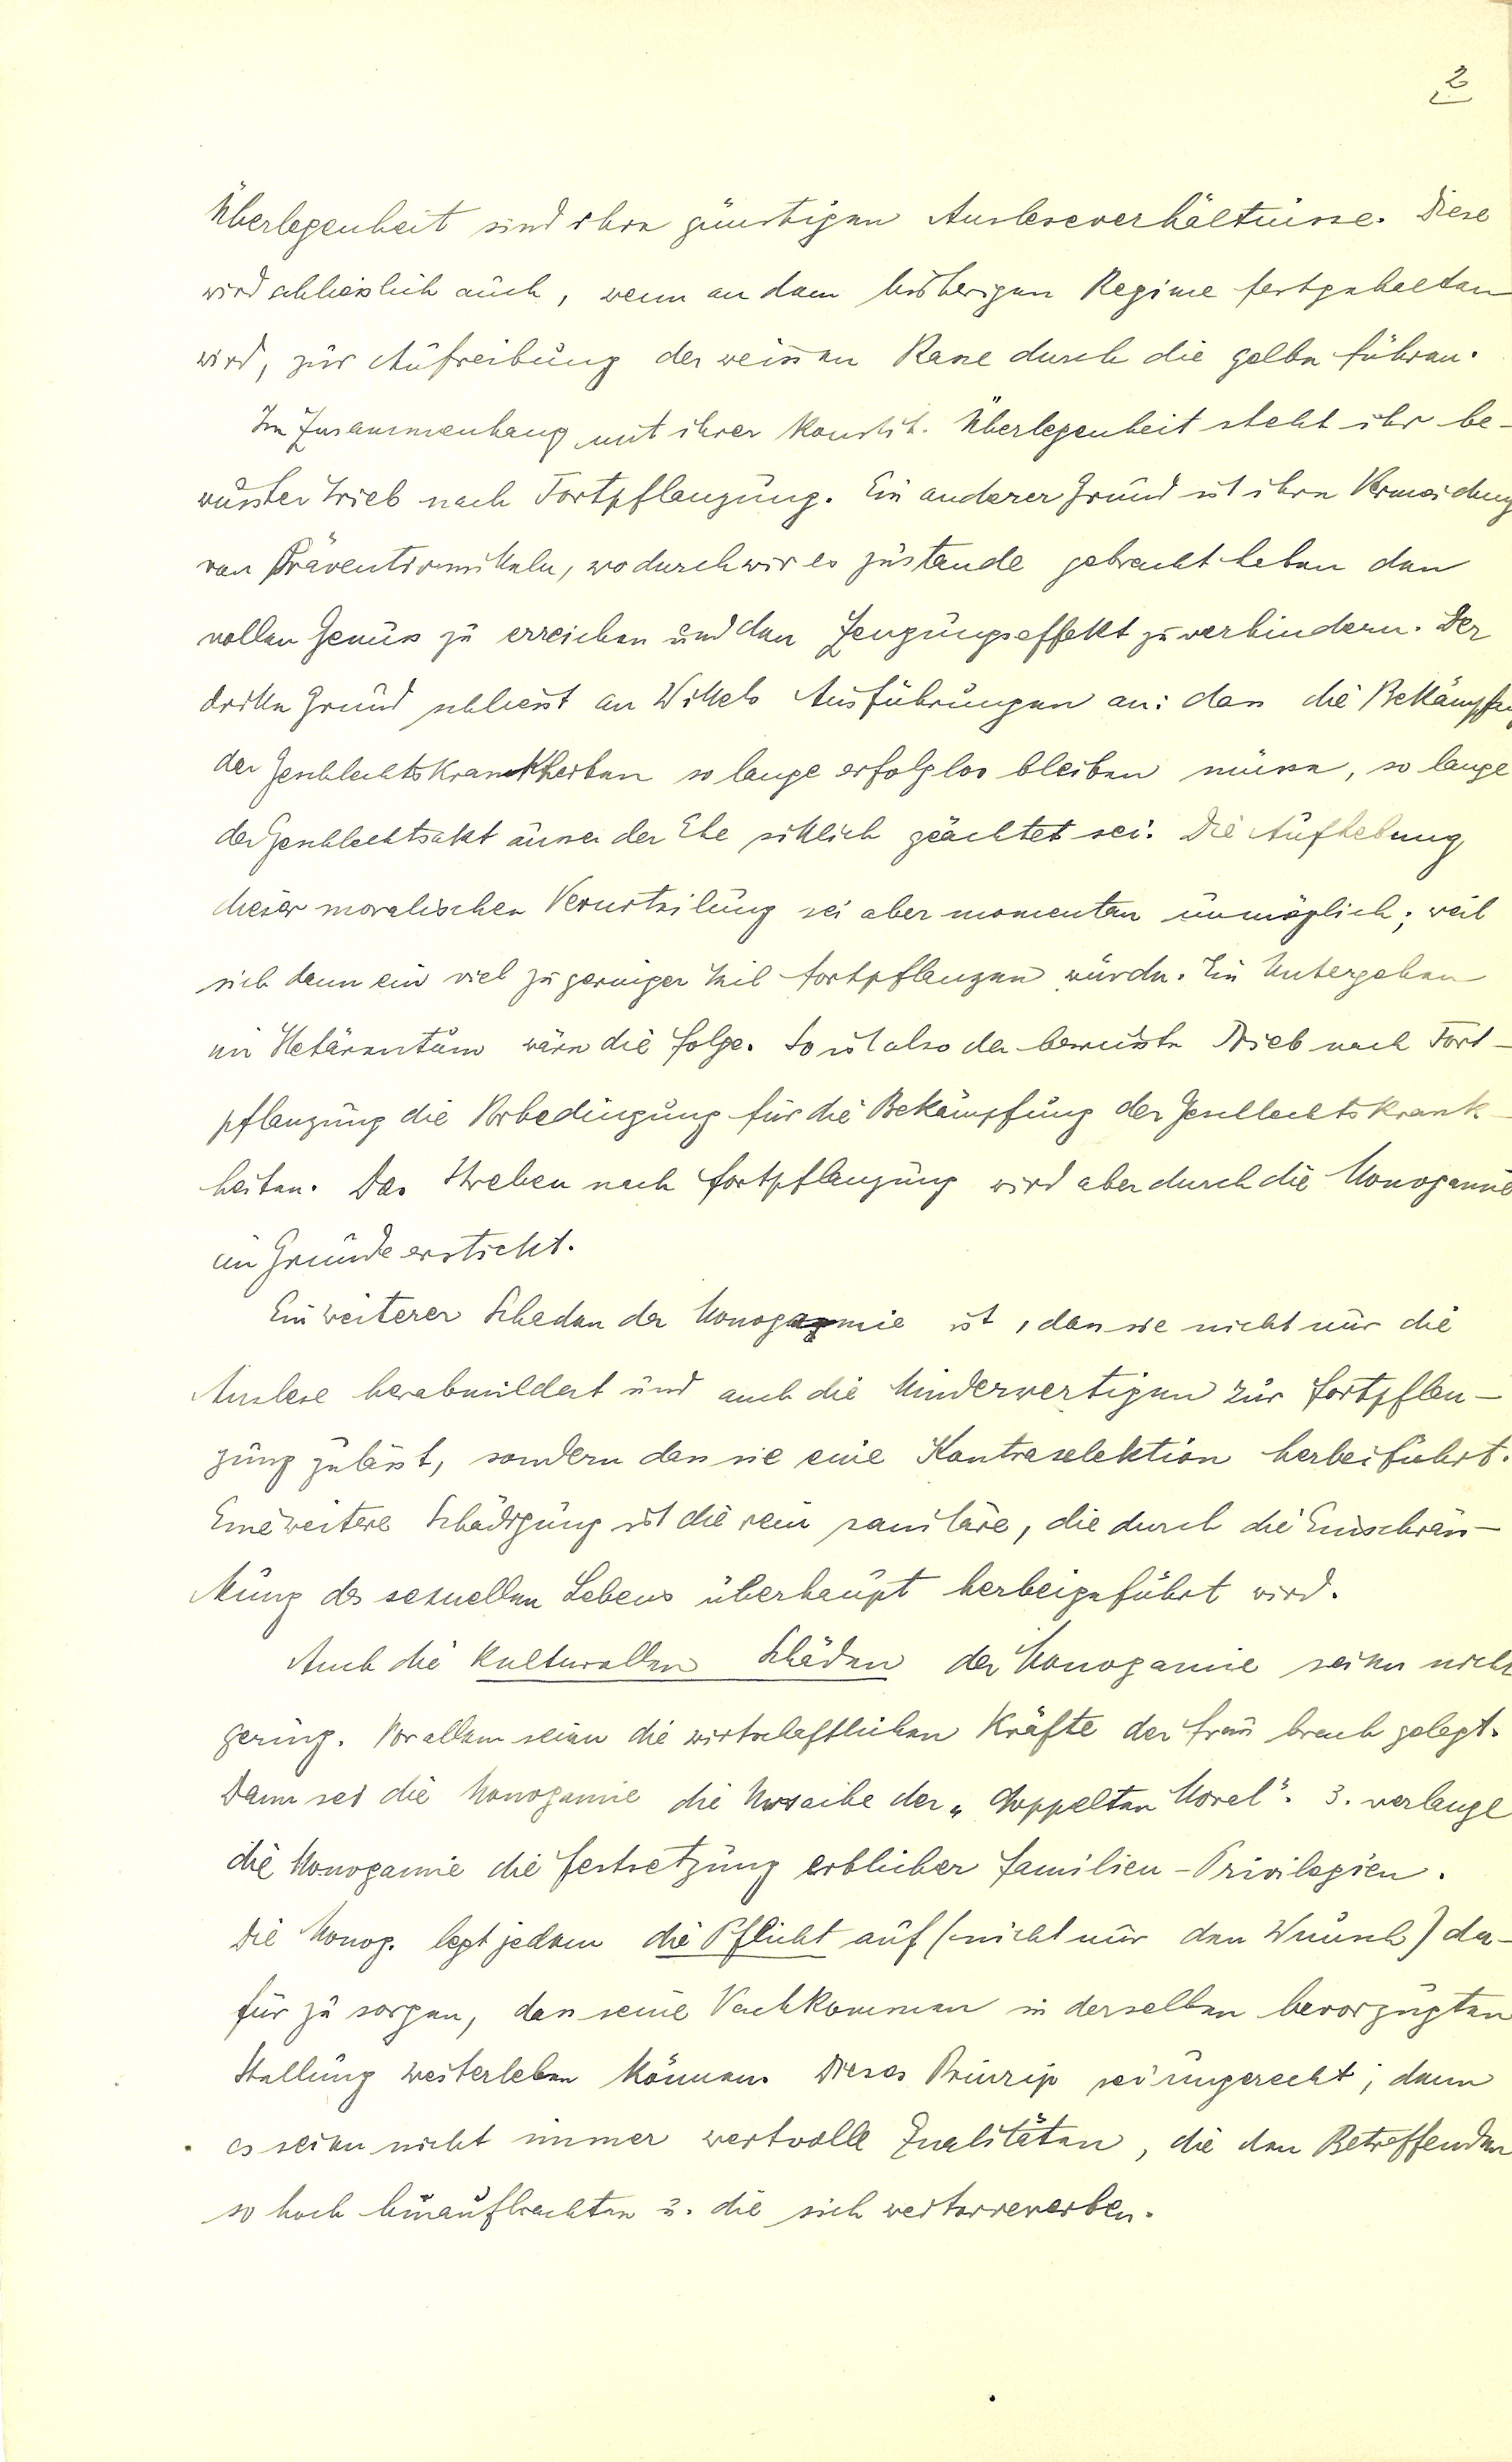 2
Überlegenheit sind ihre günstigen Ausleseverhältnisse. Diese
wird schliesslich auch, wenn an dem bisherigen Regime festgehalten
wird, zur Aufreibung der weissen Rasse durch die gelbe führen.
Im Zusammenhang mit ihrer Konstit. Überlegenheit steht ihr be-
wusster Trieb nach Fortpflanzung. Ein anderer Grund ist ihre Vermeidung
von Präventivmitteln, wodurch wir es zustande gebracht haben den
vollen Genuss zu erreichen und den Zeugungseffekt zu verhindern. Der
dritte Grund schliesst an Wittels Ausführungen an: dass die Bekämpfung
der Geschlechtskrankheiten so lange erfolglos bleiben müsse, so lange
der Geschlechtsakt ausser der Ehe sittlich geächtet sei. Die Aufhebung
dieser moralischen Verurteilung sei aber momentan unmöglich; weil
sich dann ein viel zu geringer Teil fortpflanzen würde. Ein Untergehen
im Hetärentum wäre die Folge. So ist also der bewusste Trieb nach Fort-
pflanzung die Vorbedingung für die Bekämpfung der Geschlechtskrank-
heiten. Das Streben nach Fortpflanzung wird aber durch die Monogamie
im Grunde erstickt.
Ein weiterer Schaden der Monogamie ist, dass sie nicht nur die
Auslese herabmildert und auch die Minderwertigen zur Fortpflan-
zung zulässt, sondern dass sie eine Kontraselektion herbeiführt.
Eine weitere Schädigung ist die rein sanitäre, die durch die Einschrän-
kung des sexuellen Lebens überhaupt herbeigeführt wird.
Auch die kulturellen Schäden der Monogamie seien nicht
gering. Vor allem seien die wirtschaftlichen Kräfte der Frau brach gelegt.
Dann sei die Monogamie die Ursache der „doppelten Moral". 3. verlange
die Monogamie die Festsetzung erblicher Familien-Privilegien.
Die Monog. legt jedem die Pflicht auf (nicht nur den Wunsch) da-
für zu sorgen, dass seine Nachkommen in derselben bevorzugten
Stellung weiterleben können. Dieses Prinzip sei ungerecht; denn
es seien nicht immer wertvolle Qualitäten, die den Betreffenden
so hoch hinaufbrachten u. die sich weitervererben.